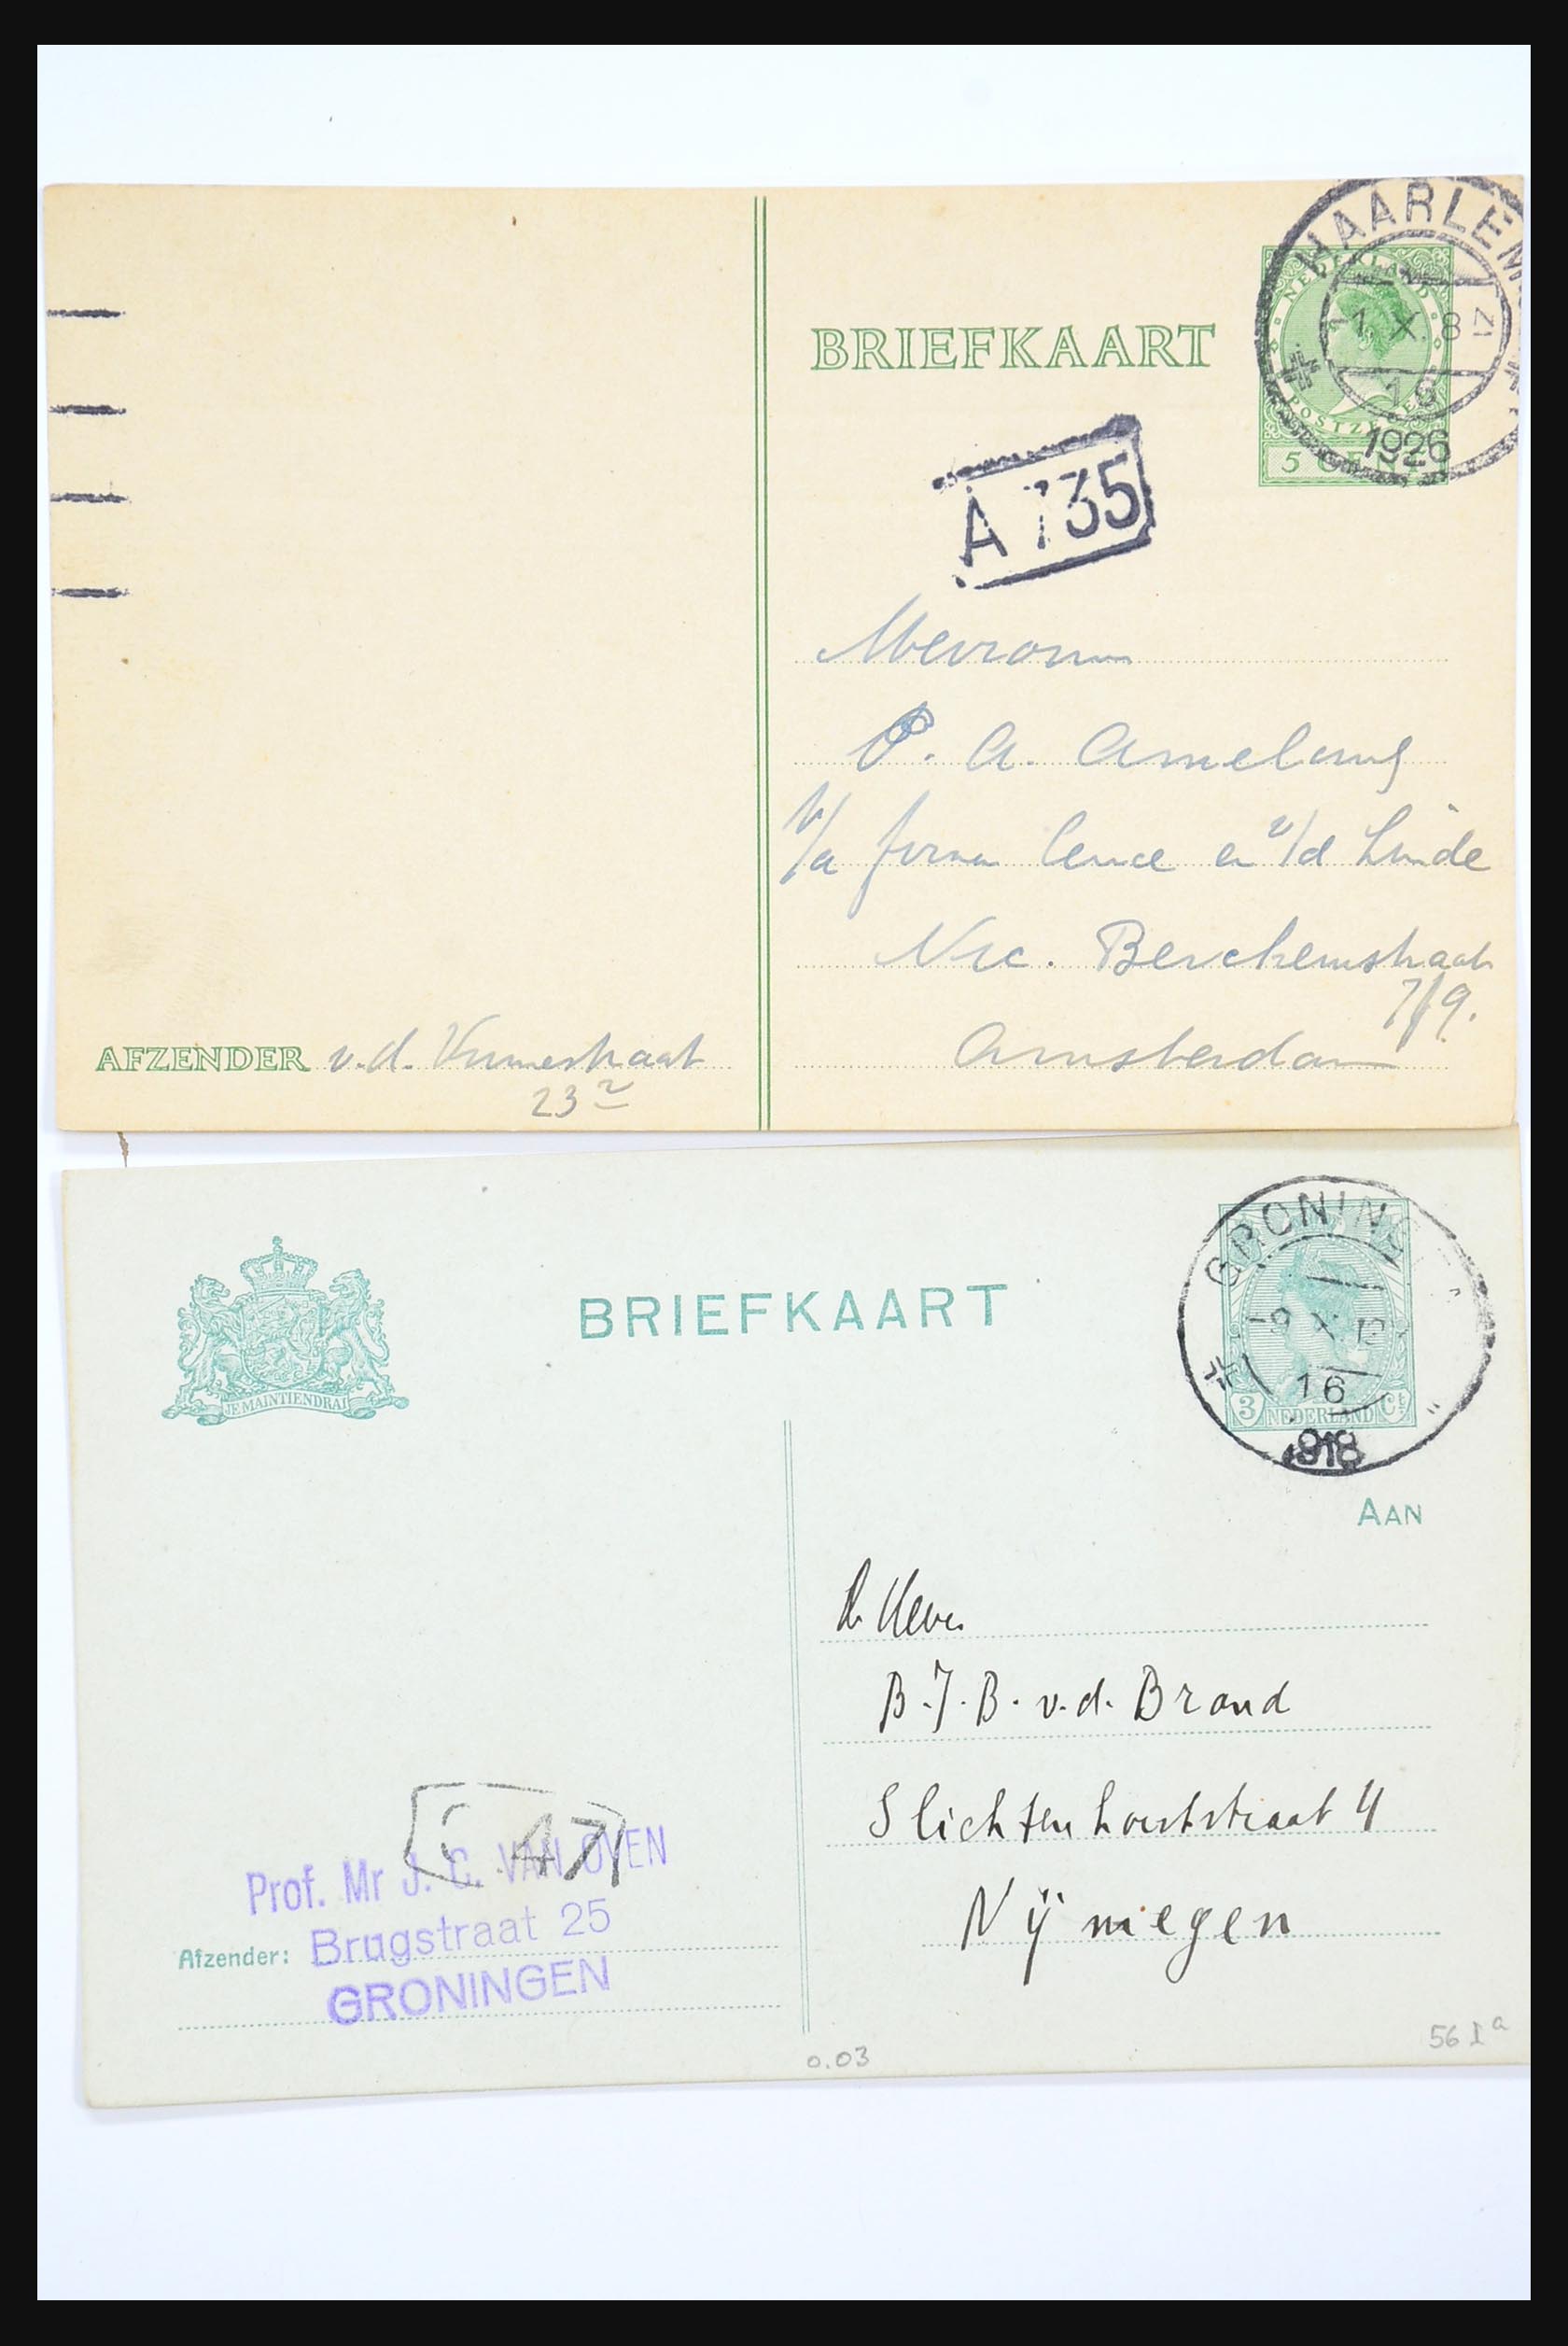 HAARLEM
NEDERLAND
1. X. 8
19
1926
POSTZEGEL
5 CENT
BRIEFKAART
A 735
Mevrouw
P. A. Amelung
p/a firma Cence en v/d Linde
Nic. Berchemstraat
7/9.
Amsterdam
AFZENDER v.d. Vinnestraat
23²
GRONINGEN
-9 X 12
16
1918
3 NEDERLAND Ct
JE MAINTIENDRAI
BRIEFKAART
AAN
B.J.B. v.d. Brand
Slichtenhorststraat 4
Nijmegen
C 471
Prof. Mr J. C. VAN OVEN
Afzender: Brugstraat 25
GRONINGEN
0.03
56 I a